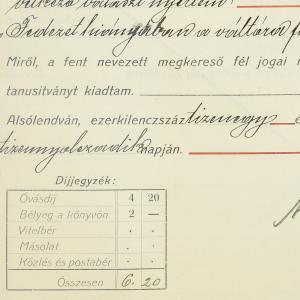 Fedezet hiányában a váltóra f
Miről, a fent nevezett megkereső fél jogai m
tanusítványt kiadtam.
Alsólendván, ezerkilenczszáz tizenegy é
tizennyolczadik napján.
Díjjegyzék:
Óvásdíj 4 20
Bélyeg a könyvön 2 —
Vitelbér . .
Másolat . .
Közlés és postabér . .
Összesen 6. 20